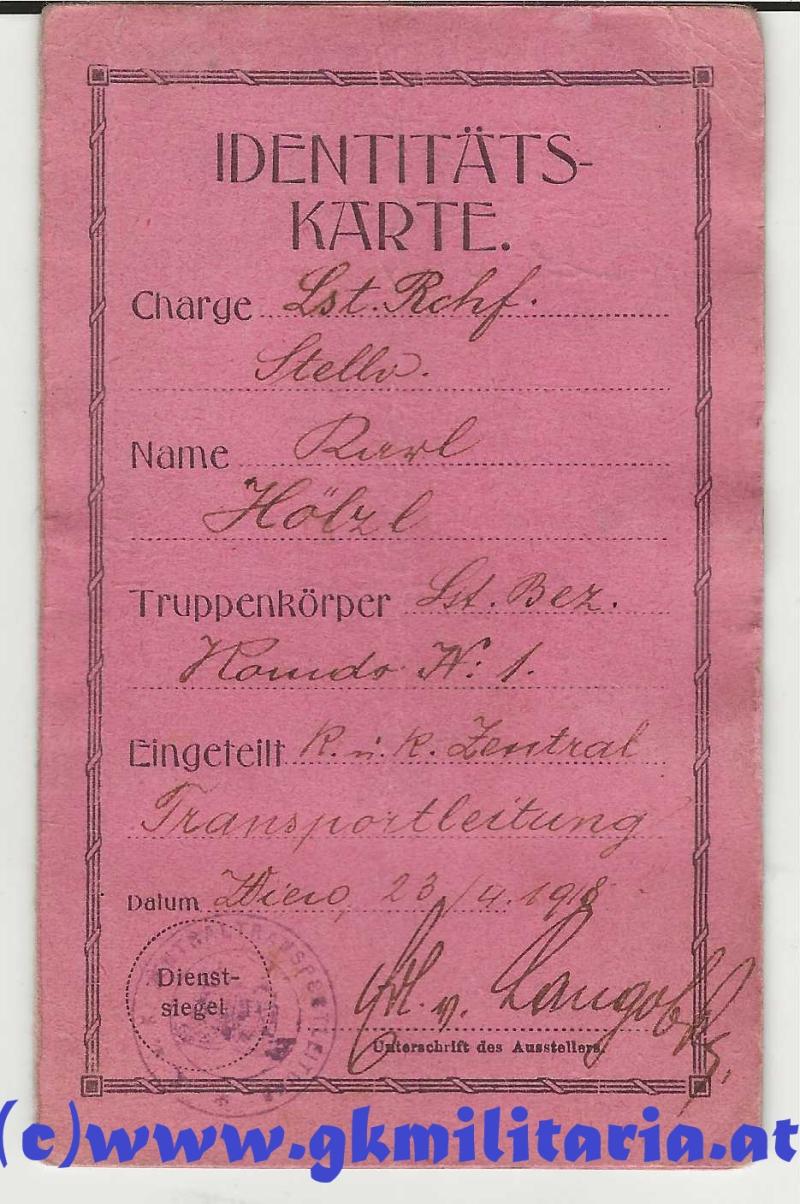 IDENTITÄTS-
KARTE.
Charge Lst. Rchf.
Stellv.
Name Karl
Hölzl
Truppenkörper Lst. Bez.
Komdo N: 1.
Eingeteilt K. u. k. Zentral
Transportleitung
Datum Wien, 23/4. 1918
ZENTRALTRANSPORTLEITUNG
Dienst-
siegel
v.
Unterschrift des Ausstellers.
(c)www.gkmilitaria.at